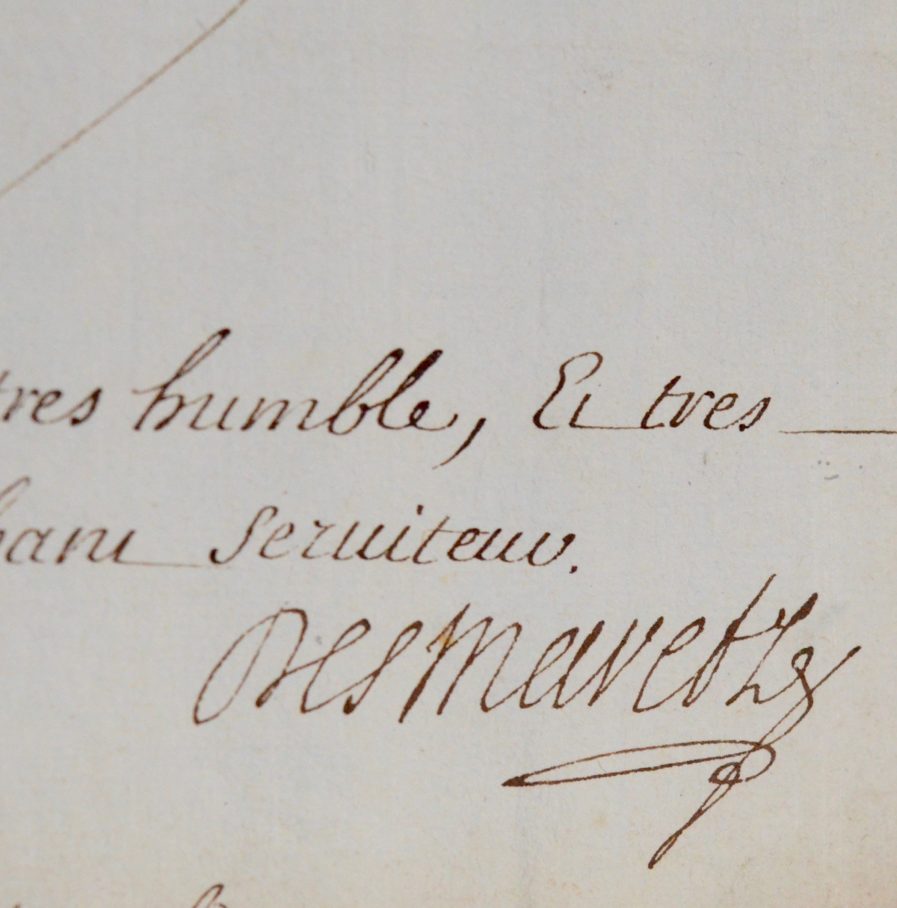 tres humble, Et tres
sant seruiteur.
Desmaretz